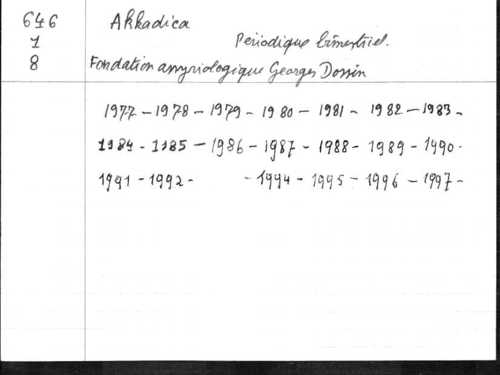 646 Akkadica
1 Périodique bimestriel.
8 Fondation assyriologique Georges Dossin
1977 - 1978 - 1979 - 1980 - 1981 - 1982 - 1983 -
1984 - 1985 - 1986 - 1987 - 1988 - 1989 - 1990 -
1991 - 1992 - - 1994 - 1995 - 1996 - 1997 -